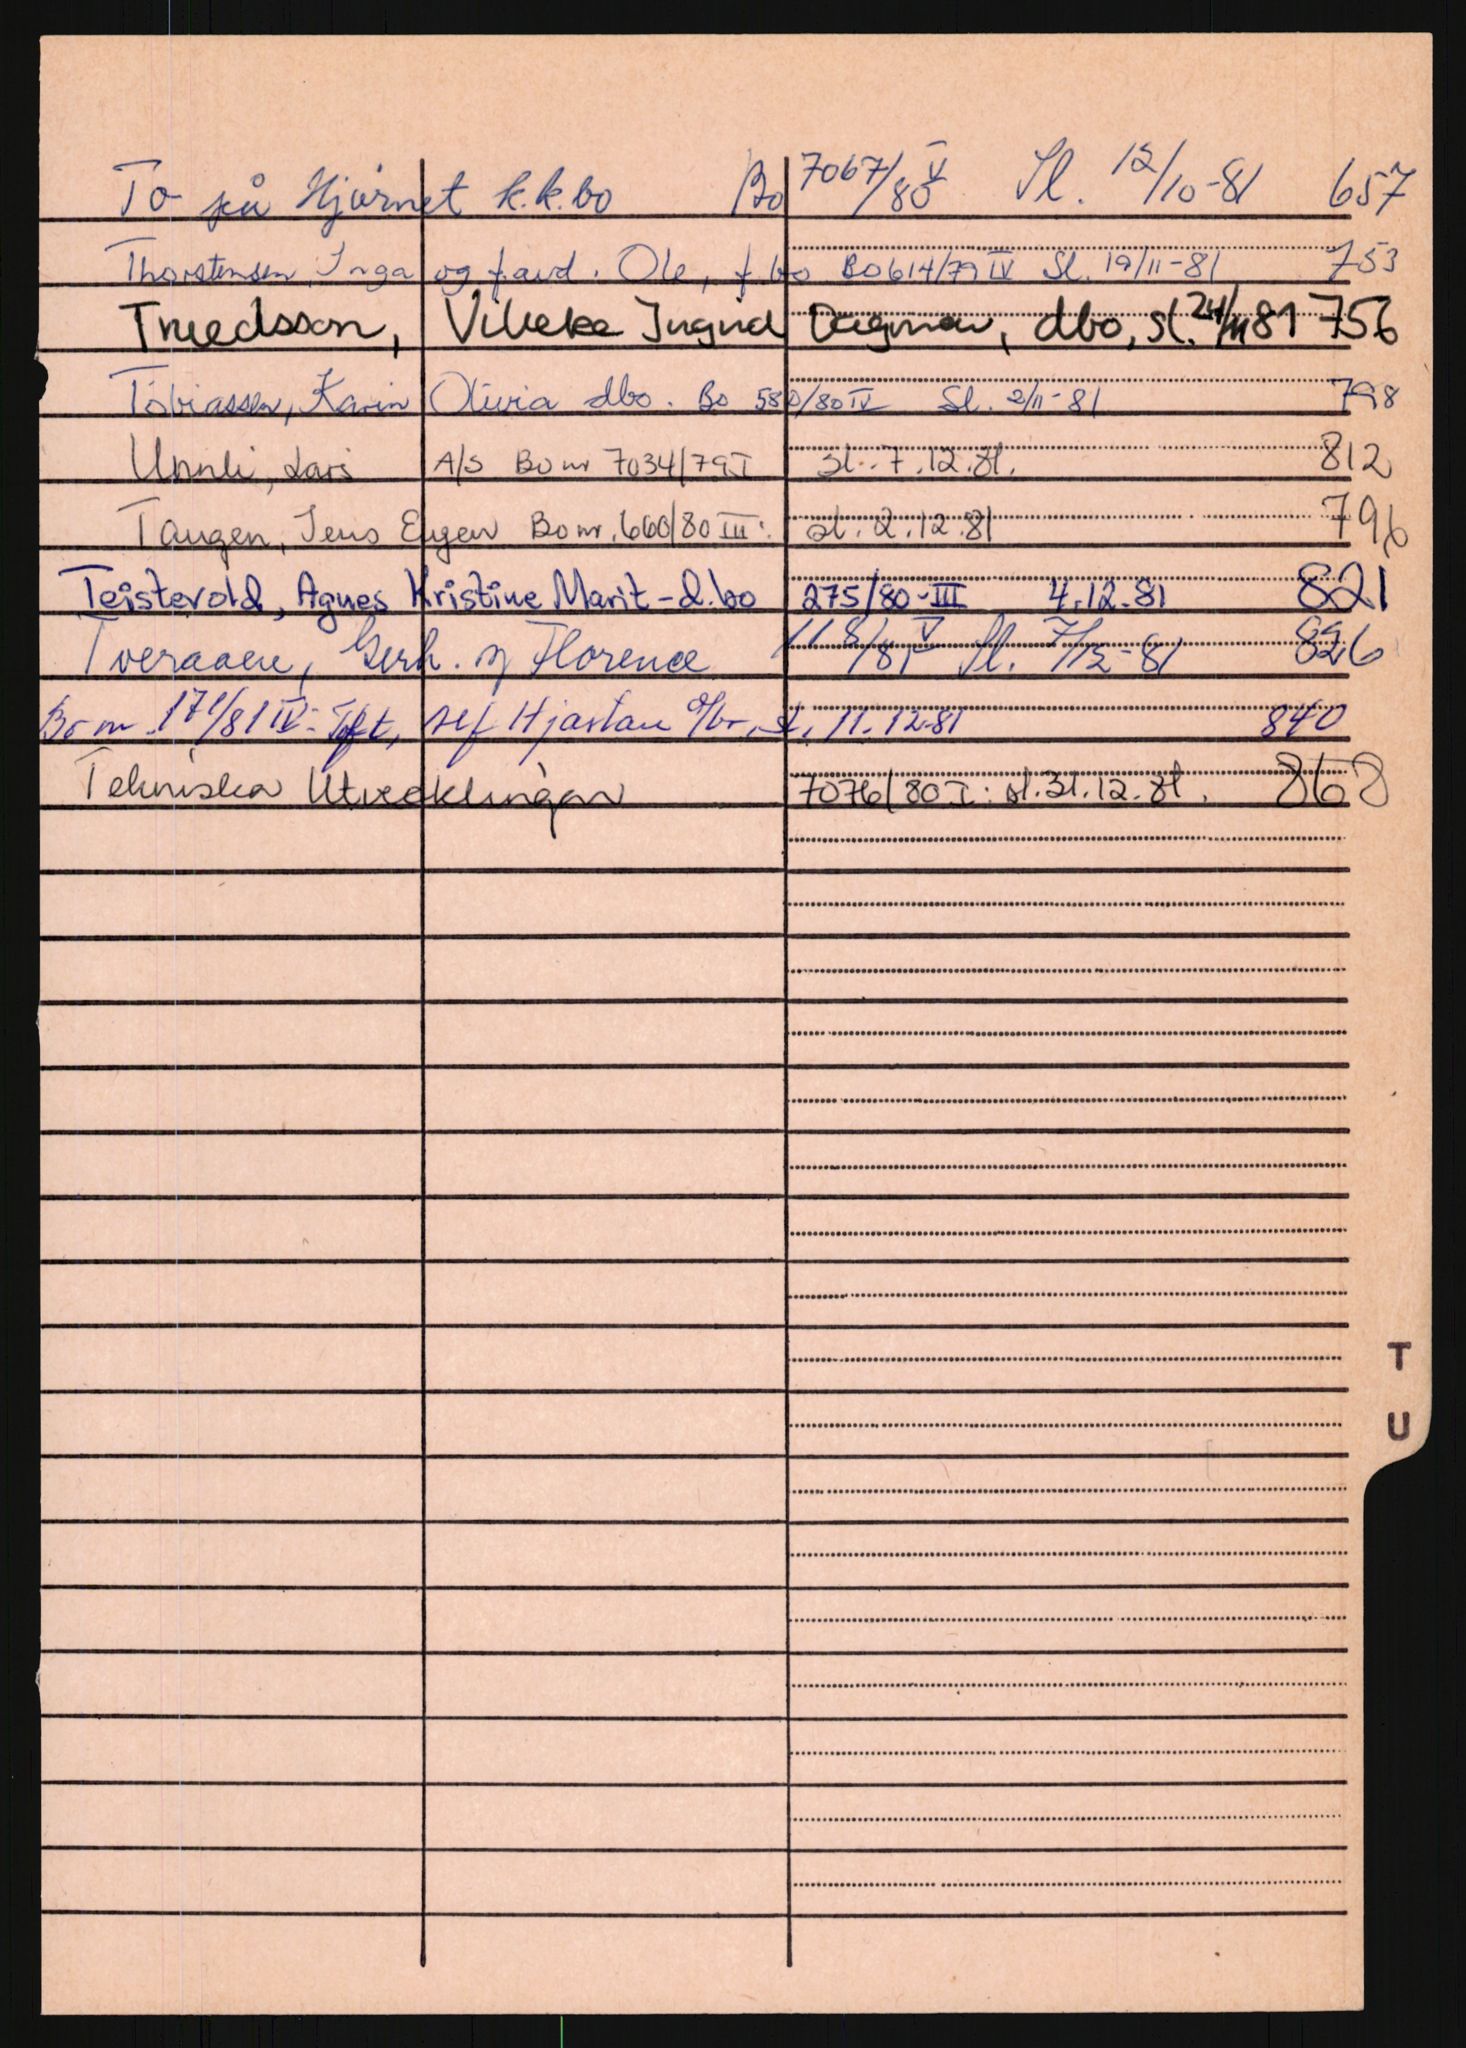 To på Hjørnet k.k.bo Bo 7067/80 V Sl. 12/10-81 657
Thorstensen, Inga og f.avd. Ole, f.bo Bo 614/79 IV Sl. 19/11-81 753
Truedsson, Vibeke Ingrid Dagmar, dbo, sl. 24/11 81 756
Tobiassen, Karin Olivia dbo. Bo 580/80 IV Sl. 2/11-81 798
Unnli, Lars A/S Bo nr 7034/79 I sl. 7.12.81. 812
Tangen, Jens Eugen Bo nr. 660/80 III: sl. 2.12.81 796
Teistevold, Agnes Kristine Marit - d.bo 275/80-III 4.12.81 821
Tveraaen, Gerh. og Florence 118/81 V Sl. 7/12-81 826
Bo nr 171/81 IV - Toft, Hjartau sl. 11.12.81 840
Tekniska Utvecklingar 7076/80 I: sl. 31.12.81. 868
T
U